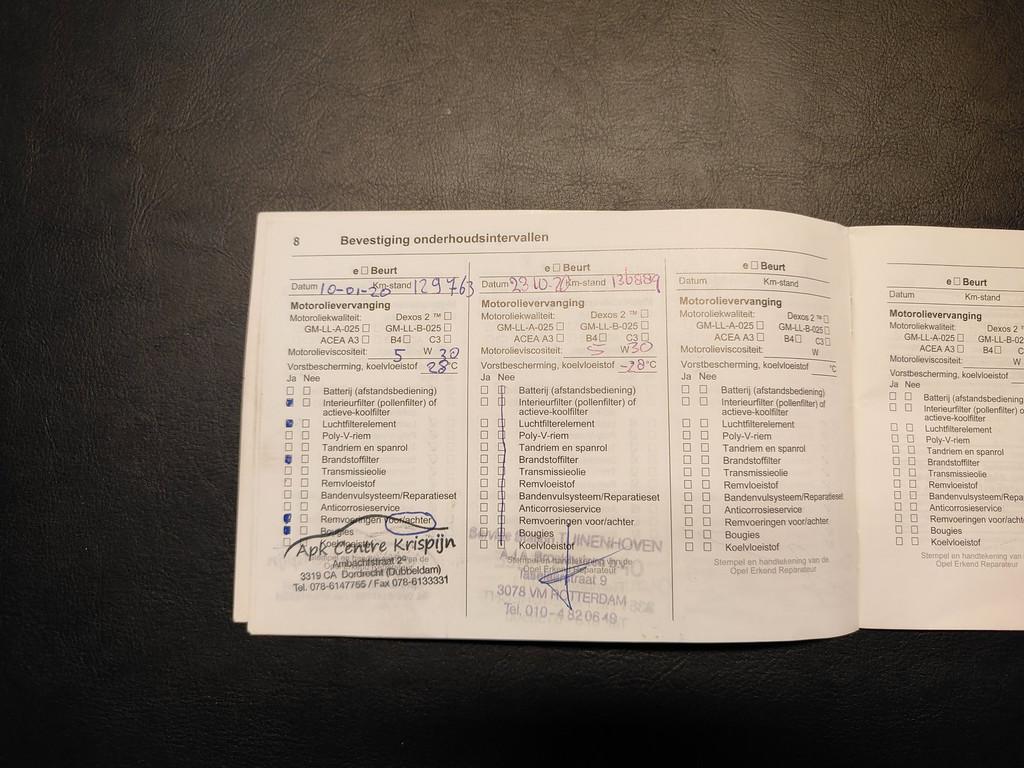 8 Bevestiging onderhoudsintervallen
e □ Beurt
Datum 10-01-20 Km-stand 129763
Motorolievervanging
Motoroliekwaliteit: Dexos 2 ™ □
GM-LL-A-025 □ GM-LL-B-025 □
ACEA A3 □ B4 □ C3 □
Motorolieviscositeit: 5 W 30
Vorstbescherming, koelvloeistof 28 °C
Ja Nee
□ □ Batterij (afstandsbediening)
□ □ Interieurfilter (pollenfilter) of
actieve-koolfilter
□ □ Luchtfilterelement
□ □ Poly-V-riem
□ □ Tandriem en spanrol
□ □ Brandstoffilter
□ □ Transmissieolie
□ □ Remvloeistof
□ □ Bandenvulsysteem/Reparatieset
□ □ Anticorrosieservice
□ □ Remvoeringen voor/achter
□ □ Bougies
□ □ Koelvloeistof
Apk Centre Krispijn
Ambachtstraat 2
3319 CA Dordrecht (Dubbeldam)
Tel. 078-6147755 / Fax 078-6133331
e □ Beurt
Datum 23 10-20 Km-stand 136889
Motorolievervanging
Motoroliekwaliteit: Dexos 2 ™ □
GM-LL-A-025 □ GM-LL-B-025 □
ACEA A3 □ B4 □ C3 □
Motorolieviscositeit: 5 W 30
Vorstbescherming, koelvloeistof -28 °C
Ja Nee
□ □ Batterij (afstandsbediening)
□ □ Interieurfilter (pollenfilter) of
actieve-koolfilter
□ □ Luchtfilterelement
□ □ Poly-V-riem
□ □ Tandriem en spanrol
□ □ Brandstoffilter
□ □ Transmissieolie
□ □ Remvloeistof
□ □ Bandenvulsysteem/Reparatieset
□ □ Anticorrosieservice
□ □ Remvoeringen voor/achter
□ □ Bougies
□ □ Koelvloeistof
Stempel en handtekening van de
Opel Erkend Reparateur
straat 9
3078 VM ROTTERDAM
Tel. 010-4820649
e □ Beurt
Datum Km-stand
Motorolievervanging
Motoroliekwaliteit: Dexos 2 ™ □
GM-LL-A-025 □ GM-LL-B-025 □
ACEA A3 □ B4 □ C3 □
Motorolieviscositeit: W
Vorstbescherming, koelvloeistof °C
Ja Nee
□ □ Batterij (afstandsbediening)
□ □ Interieurfilter (pollenfilter) of
actieve-koolfilter
□ □ Luchtfilterelement
□ □ Poly-V-riem
□ □ Tandriem en spanrol
□ □ Brandstoffilter
□ □ Transmissieolie
□ □ Remvloeistof
□ □ Bandenvulsysteem/Reparatieset
□ □ Anticorrosieservice
□ □ Remvoeringen voor/achter
□ □ Bougies
□ □ Koelvloeistof
Stempel en handtekening van de
Opel Erkend Reparateur
e □ Beurt
Datum Km-stand
Motorolievervanging
Motoroliekwaliteit: Dexos 2
GM-LL-A-025 □ GM-LL-B-02
ACEA A3 □ B4 □ C
Motorolieviscositeit: W
Vorstbescherming, koelvloeistof
Ja Nee
□ □ Batterij (afstandsbediening)
□ □ Interieurfilter (pollenfilter) of
actieve-koolfilter
□ □ Luchtfilterelement
□ □ Poly-V-riem
□ □ Tandriem en spanrol
□ □ Brandstoffilter
□ □ Transmissieolie
□ □ Remvloeistof
□ □ Bandenvulsysteem/Repara
□ □ Anticorrosieservice
□ □ Remvoeringen voor/achter
□ □ Bougies
□ □ Koelvloeistof
Stempel en handtekening van
Opel Erkend Reparateur